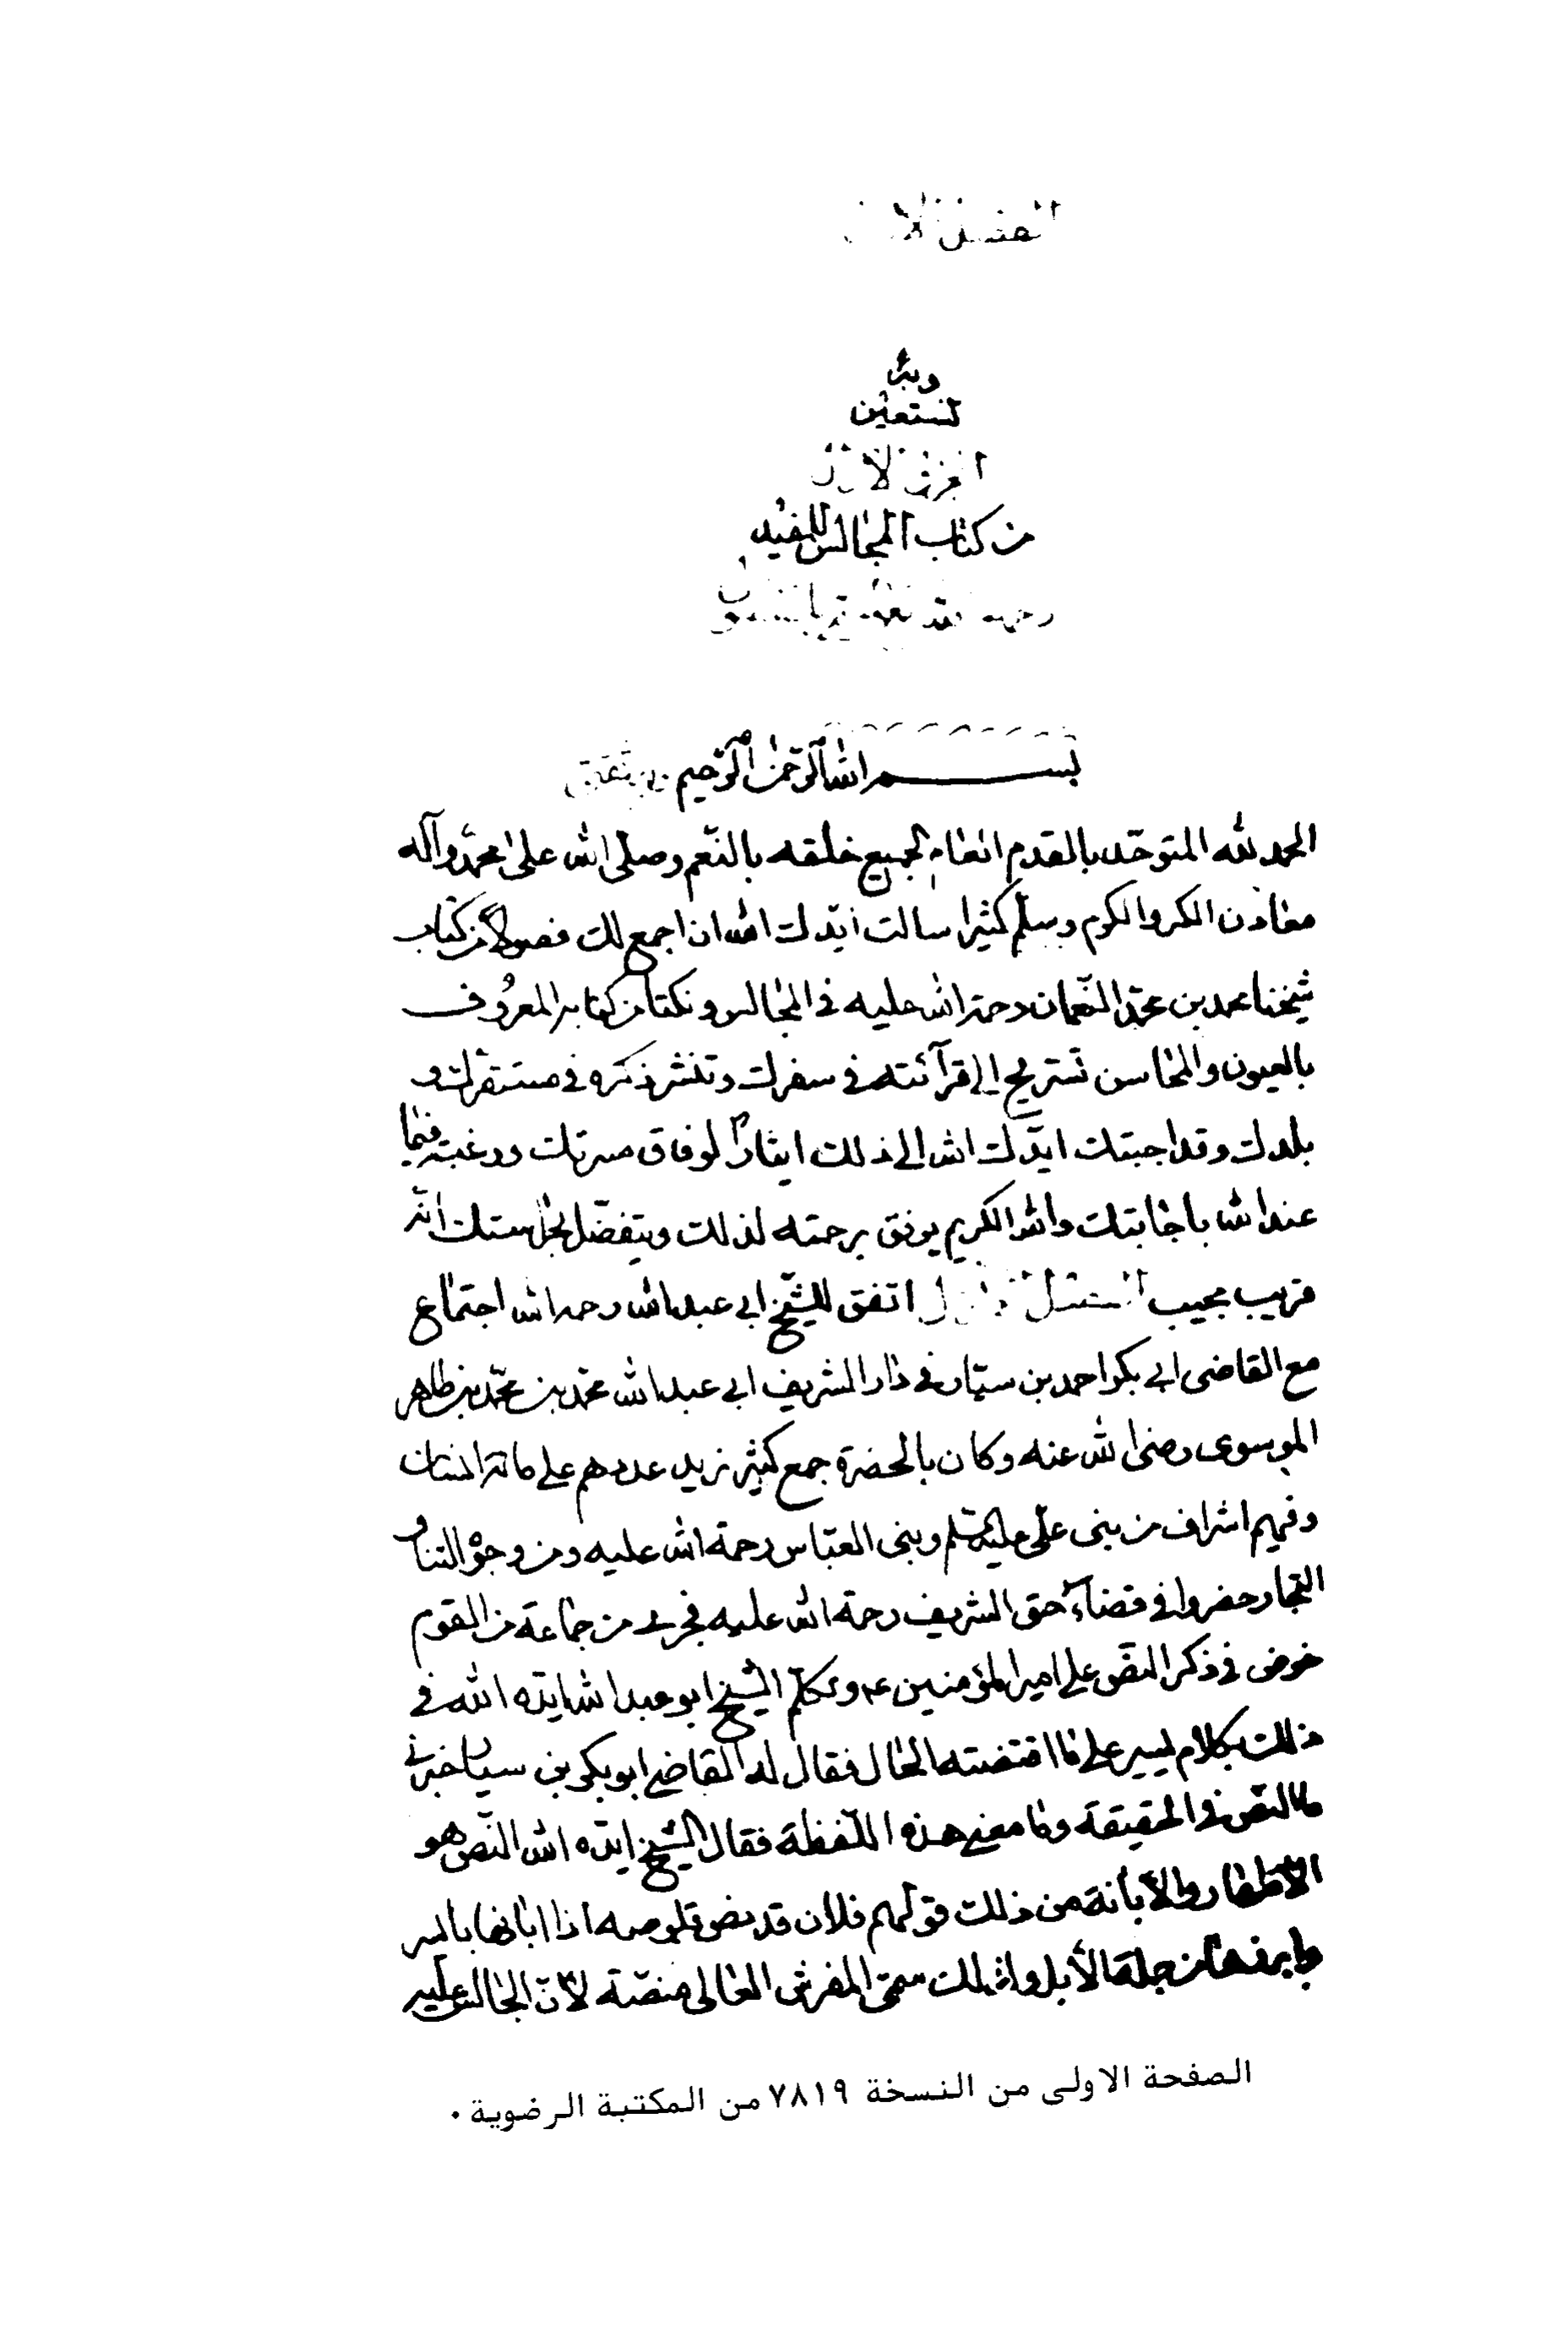 الفصل الأول
وبه
نستعين
الجزء الأول
من كتاب المجالس للمفيد
رحمه الله
بسم الله الرحمن الرحيم وبه ثقتي
الحمد لله المتوحد بالقدم العام لجميع خلقه بالنعم وصلى الله على محمد وآله
معادن الكرم وسلم كثيرا سالت ايدك الله ان اجمع لك فصولا من كتاب
شيخنا محمد بن محمد النعمان رحمة الله عليه في المجالس ونكتا من كتابه المعروف
بالعيون والمحاسن تستريح الى قرآئته في سفرك وتنشر ذكره في مستقرك و
بلدك وقد اجبتك ايدك الله الى ذلك ايثارا لوفاق مسرتك ورغبة فيما
عند الله باجابتك والله الكريم يوفق برحمته لذلك ويتفضل انه
قريب مجيب اتفق للشيخ ابي عبد الله رحمه الله اجتماع
مع القاضى ابي بكر احمد بن سيار في دار الشريف ابي عبد الله محمد بن محمد بن طاهر
الموسوى رضى الله عنه وكان بالحضرة جمع كثير يزيد عددهم على مائة انسان
وفيهم اشراف من بنى على عليه السلم وبنى العباس رحمة الله عليه ومن وجوه الناس و
التجار حضروا في قضاء حق الشريف رحمة الله عليه فجرى من جماعة من القوم
خوض في ذكر النص على امير المؤمنين ع وتكلم الشيخ ابو عبد الله ايده الله في
ذلك بكلام يسير على ما اقتضته الحال فقال له القاضي ابو بكر بن سيار خبرني
ما النص في الحقيقة وما معنى هذه اللفظة فقال الشيخ ايده الله النص هو
الاظهار والابانة من ذلك قولهم فلان قد نص قلوصه اذا ابانها بالسير
وابرزها من جملة الأبل ولذلك سمى المفرش العالى منصة لأن الجالس عليه
الصفحة الاولى من النسخة ٧٨١٩ من المكتبة الرضوية .